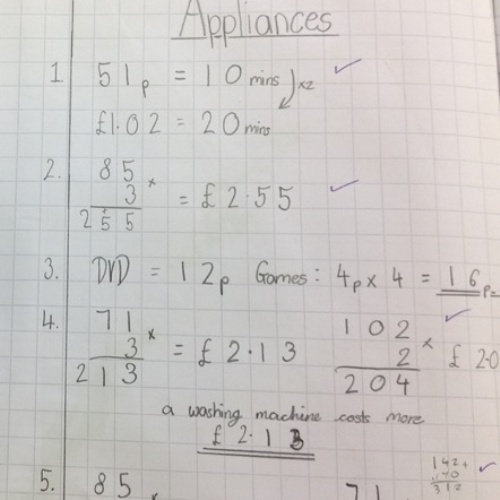 Appliances
1. 51p = 10 mins ×2
£1.02 = 20 mins
2. 85
3 × = £2.55
255
3. DVD = 12p Games: 4p × 4 = 16p
4. 71 102
3 × = £2.13 2 × £2.0
213 204
a washing machine costs more
£2.13
142+
312
5. 85 71